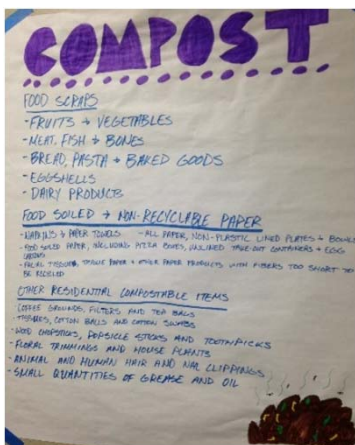 COMPOST
FOOD SCRAPS
- FRUITS + VEGETABLES
- MEAT, FISH + BONES
- BREAD, PASTA + BAKED GOODS
- EGGSHELLS
- DAIRY PRODUCTS
FOOD SOILED + NON-RECYCLABLE PAPER
- NAPKINS + PAPER TOWELS - ALL PAPER, NON-PLASTIC LINED PLATES + BOWLS
- FOOD SOILED PAPER, INCLUDING PIZZA BOXES, UNLINED TAKE-OUT CONTAINERS + EGG
CARTONS
- FACIAL TISSUES, TISSUE PAPER + OTHER PAPER PRODUCTS WITH FIBERS TOO SHORT TO
BE RECYCLED
OTHER RESIDENTIAL COMPOSTABLE ITEMS
COFFEE GROUNDS, FILTERS AND TEA BAGS
TISSUES, COTTON BALLS AND COTTON SWABS
- WOOD CHOPSTICKS, POPSICLE STICKS AND TOOTHPICKS
- FLORAL TRIMMINGS AND HOUSE PLANTS
- ANIMAL AND HUMAN HAIR AND NAIL CLIPPINGS
- SMALL QUANTITIES OF GREASE AND OIL